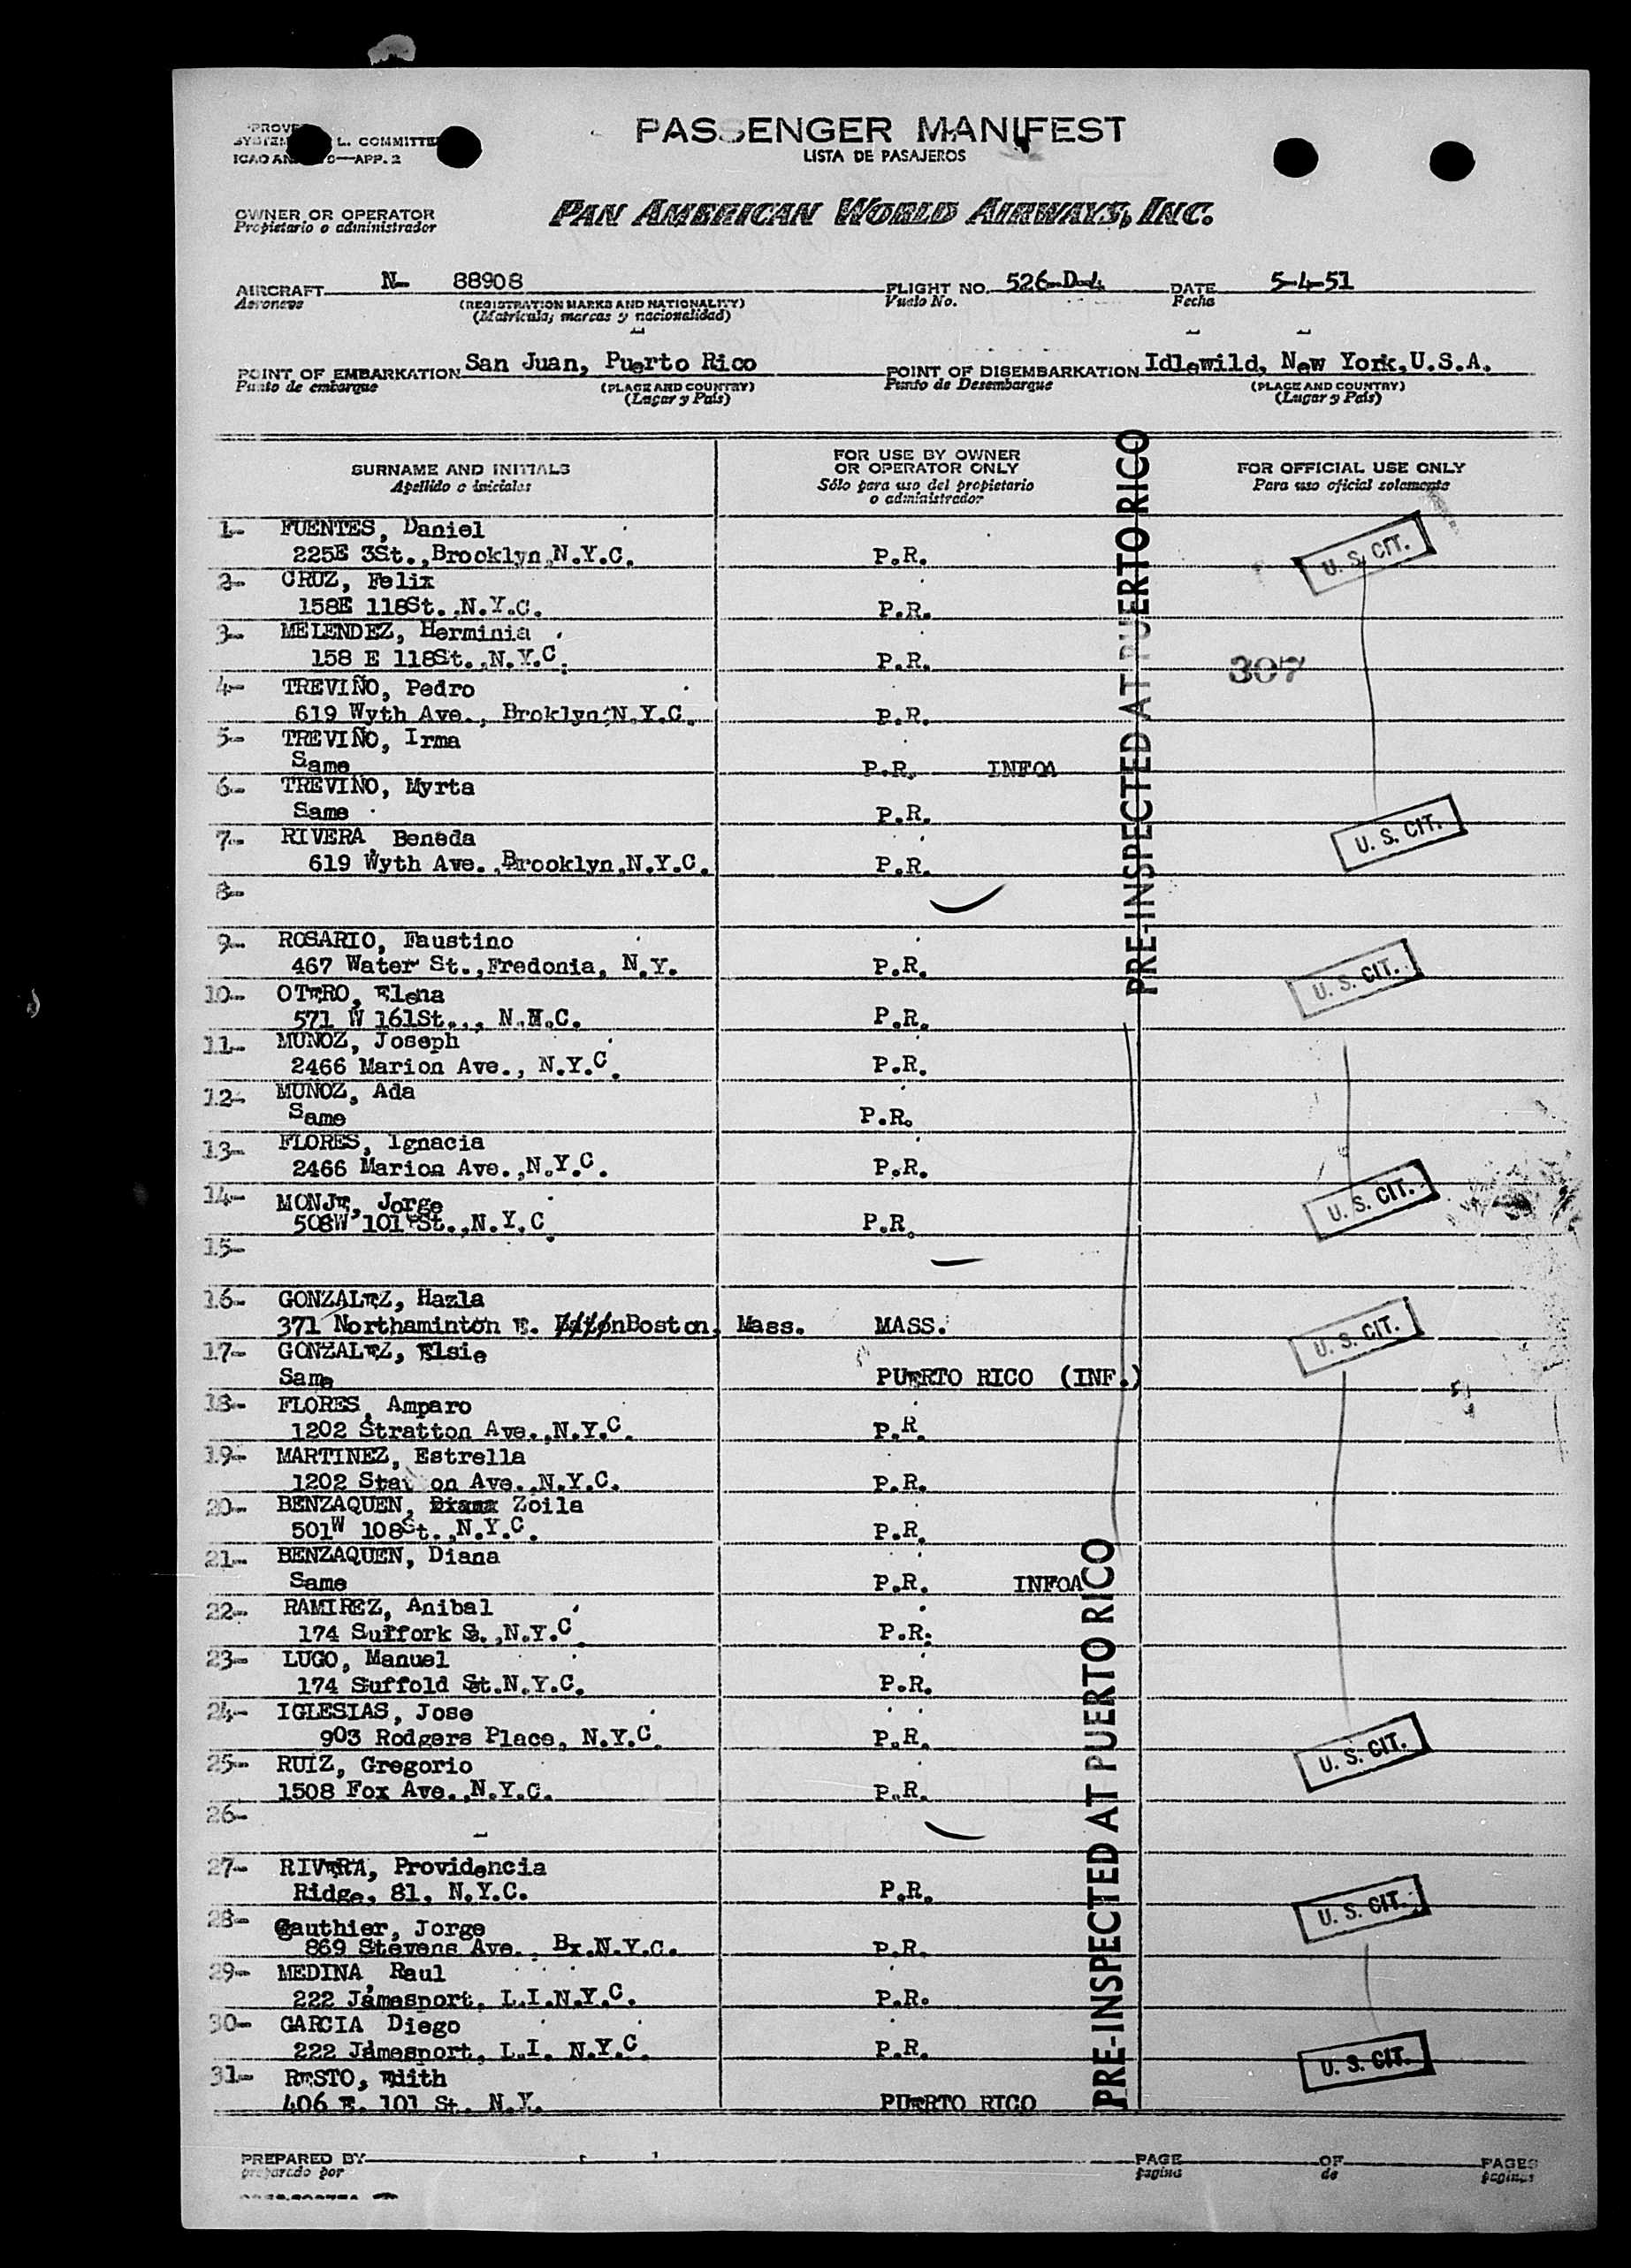 PASSENGER MANIFEST
LISTA DE PASAJEROS
L. COMMITTE
ICAO AN —APP. 2
OWNER OR OPERATOR
Propietario o administrador
PAN AMERICAN WORLD AIRWAYS, INC.
AIRCRAFT N- 88908 FLIGHT NO. 526-D-4 DATE 5-4-51
Aeronave (REGISTRATION MARKS AND NATIONALITY) Vuelo No. Fecha
(Matrícula; marcas y nacionalidad)
POINT OF EMBARKATION San Juan, Puerto Rico POINT OF DISEMBARKATION Idlewild, New York,U.S.A.
Punto de embarque (PLACE AND COUNTRY) Punto de Desembarque (PLACE AND COUNTRY)
(Lugar y País) (Lugar y País)
SURNAME AND INITIALS FOR USE BY OWNER OR OPERATOR ONLY FOR OFFICIAL USE ONLY
Apellido e iniciales Sólo para uso del propietario o administrador Para uso oficial solamente
PRE-INSPECTED AT PUERTO RICO
1- FUENTES, Daniel
225E 3St.,Brooklyn,N.Y.C. P.R. U. S. CIT.
2- CRUZ, Felix
158E 118St.,N.Y.C. P.R.
3- MELENDEZ, Herminia
158 E 118St.,N.Y.C. P.R. 307
4- TREVIÑO, Pedro
619 Wyth Ave., Broklyn,N.Y.C. P.R.
5- TREVIÑO, Irma
Same P.R. INFOA
6- TREVIÑO, Myrta
Same P.R.
7- RIVERA, Beneda U. S. CIT.
619 Wyth Ave.,Brooklyn,N.Y.C. P.R.
8-
9- ROSARIO, Faustino
467 Water St.,Fredonia, N.Y. P.R. U. S. CIT.
10- OTERO, Elena
571 W 161St.,, N.Y.C. P.R.
11- MUÑOZ, Joseph
2466 Marion Ave., N.Y.C. P.R.
12- MUÑOZ, Ada
Same P.R.
13- FLORES, Ignacia
2466 Marion Ave.,N.Y.C. P.R.
14- MONJE, Jorge U. S. CIT.
508W 101 St.,N.Y.C. P.R.
15-
16- GONZALEZ, Hazla
371 Northaminton E. Boston, Mass. MASS. U. S. CIT.
17- GONZALEZ, Elsie
Same PUERTO RICO (INF.)
18- FLORES, Amparo
1202 Stratton Ave.,N.Y.C. P.R.
19- MARTINEZ, Estrella
1202 Ave.,N.Y.C. P.R.
20- BENZAQUEN, Zoila
501W 108St.,N.Y.C. P.R.
21- BENZAQUEN, Diana
Same P.R. INFOA
PRE-INSPECTED AT PUERTO RICO
22- RAMIREZ, Anibal
174 Suffork S.,N.Y.C. P.R.
23- LUGO, Manuel
174 Suffold St.N.Y.C. P.R.
24- IGLESIAS, Jose
903 Rodgers Place, N.Y.C. P.R.
25- RUIZ, Gregorio U. S. CIT.
1508 Fox Ave.,N.Y.C. P.R.
26-
27- RIVERA, Providencia
Ridge, 81, N.Y.C. P.R. U. S. CIT.
28- Gauthier, Jorge
869 Stevens Ave., Bx.N.Y.C. P.R.
29- MEDINA, Raul
222 Jamesport, L.I.N.Y.C. P.R.
30- GARCIA Diego
222 Jamesport, L.I. N.Y.C. P.R. U. S. CIT.
31- RESTO, Edith
406 E. 101 St. N.Y. PUERTO RICO
PREPARED BY PAGE OF PAGES
preparado por página de páginas